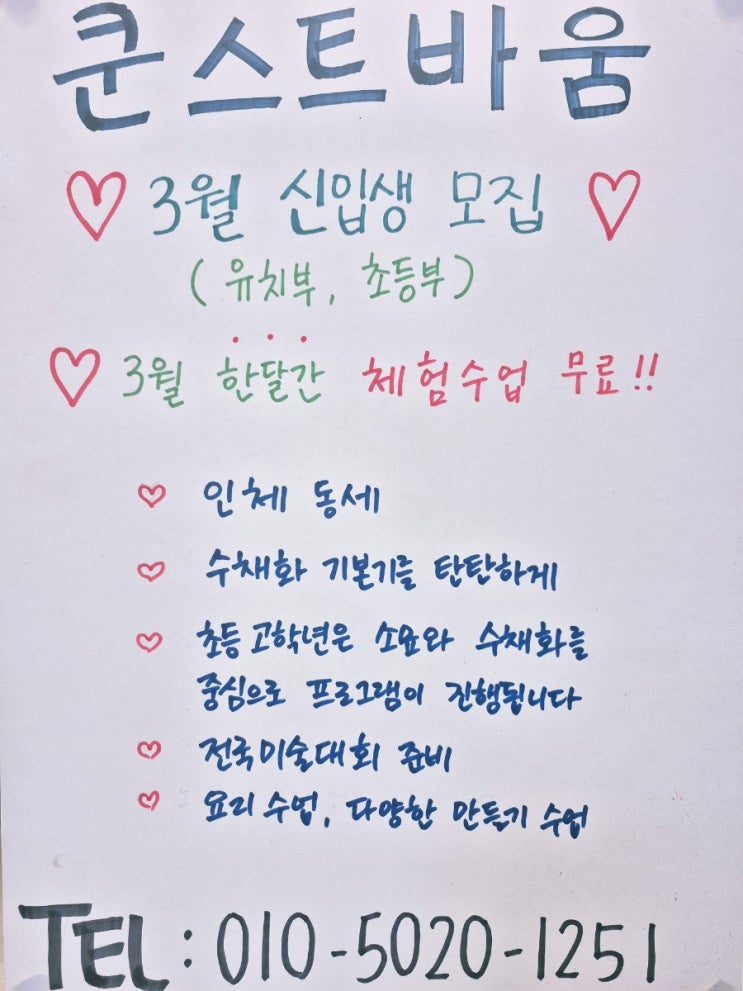 쿤스트바움
♡ 3월 신입생 모집 ♡
(유치부, 초등부)
♡ 3월 한달간 체험수업 무료!!
♡ 인체 동세
♡ 수채화 기본기를 탄탄하게
♡ 초등 고학년은 소묘와 수채화를
중심으로 프로그램이 진행됩니다
♡ 전국미술대회 준비
♡ 요리 수업, 다양한 만들기 수업
TEL: 010-5020-1251